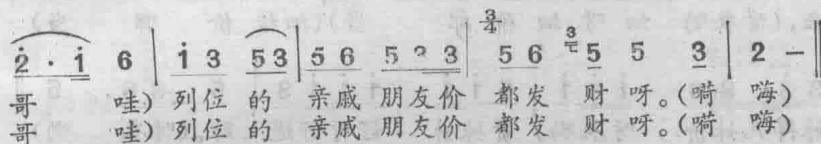 3/4
2 · i 6 | i 3 5 3 | 5 6 5 3 3 | 5 6 3 5 5 3 | 2 — ‖
哥 哇) 列位 的 亲戚 朋友价 都发 财 呀。(嗬 嗨)
哥 哇) 列位 的 亲戚 朋友价 都发 财 呀。(嗬 嗨)